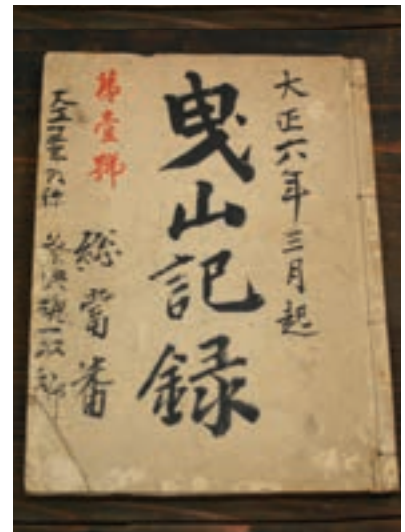 大正六年三月起
曳山記録
第壹號
総當番